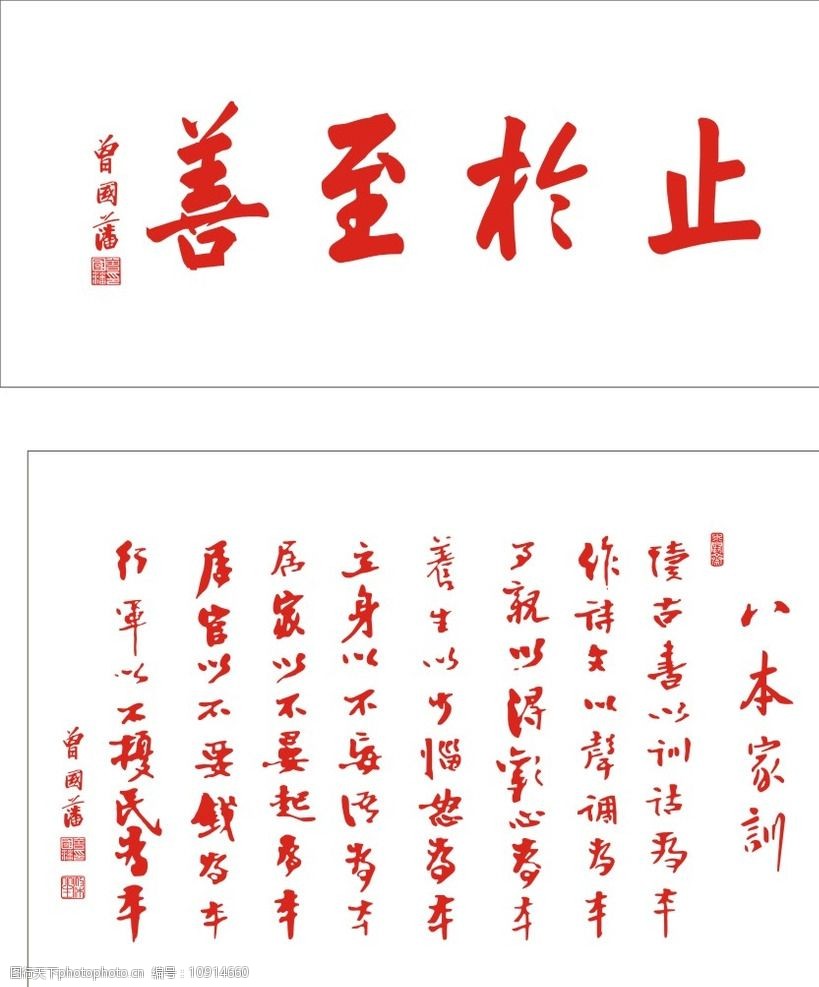 止於至善
曾國藩
八本家訓
讀古書以訓詁為本
作詩文以聲調為本
事親以得歡心為本
養生以少惱怒為本
立身以不妄語為本
居家以不晏起為本
居官以不要錢為本
行軍以不擾民為本
曾國藩
图行天下photophoto.cn 编号:10914660